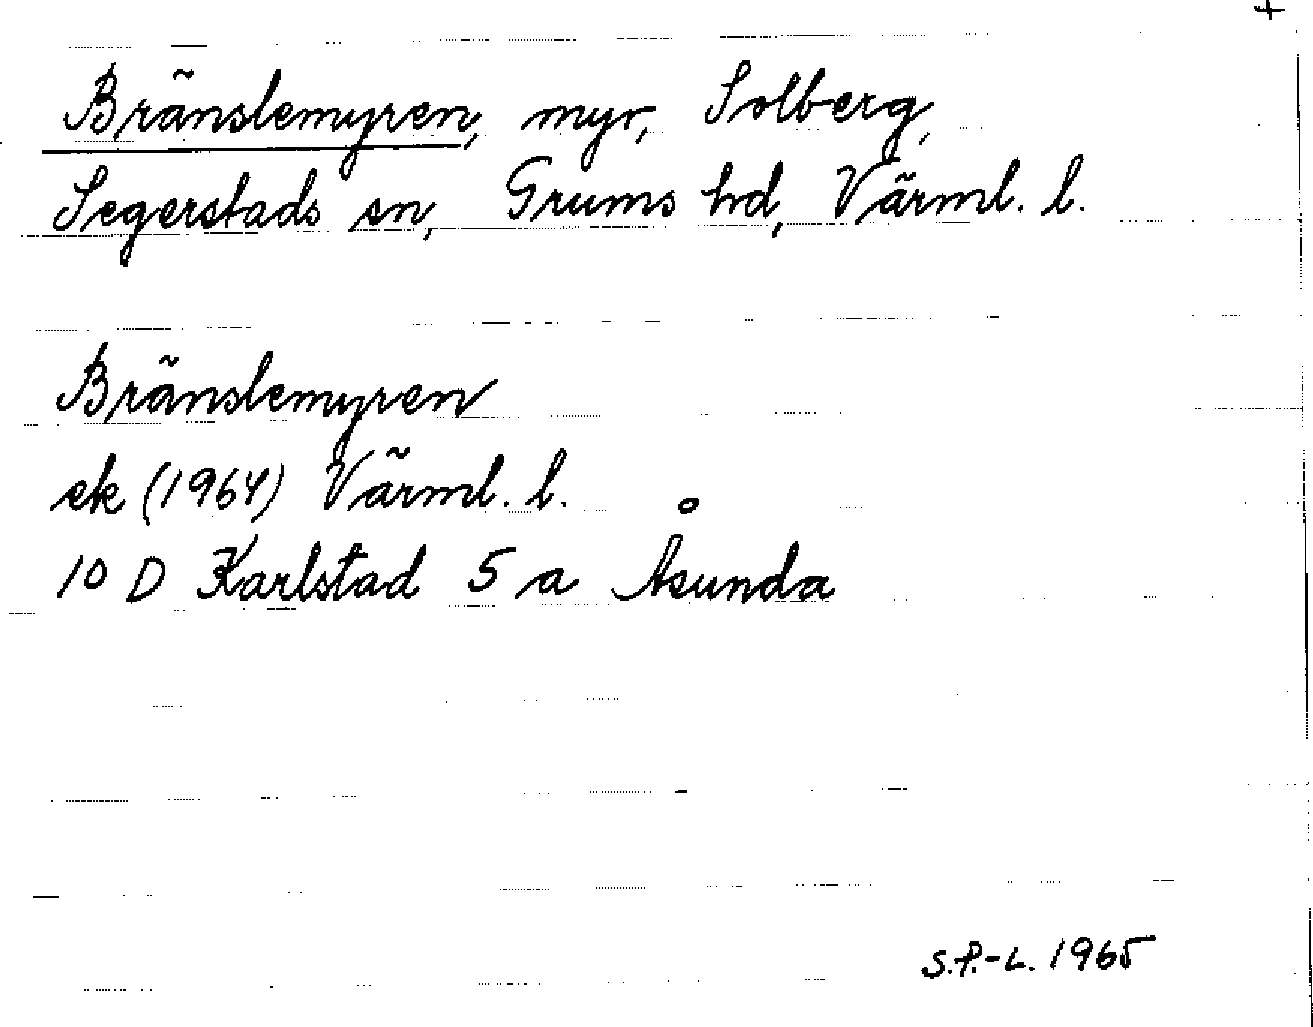 +
Bränslemyren, myr, Solberg,
Segerstads sn, Grums hd, Värml. l.
Bränslemyren
ek (1964) Värml. l.
10 D Karlstad 5 a Åsunda
S.P.-L. 1965